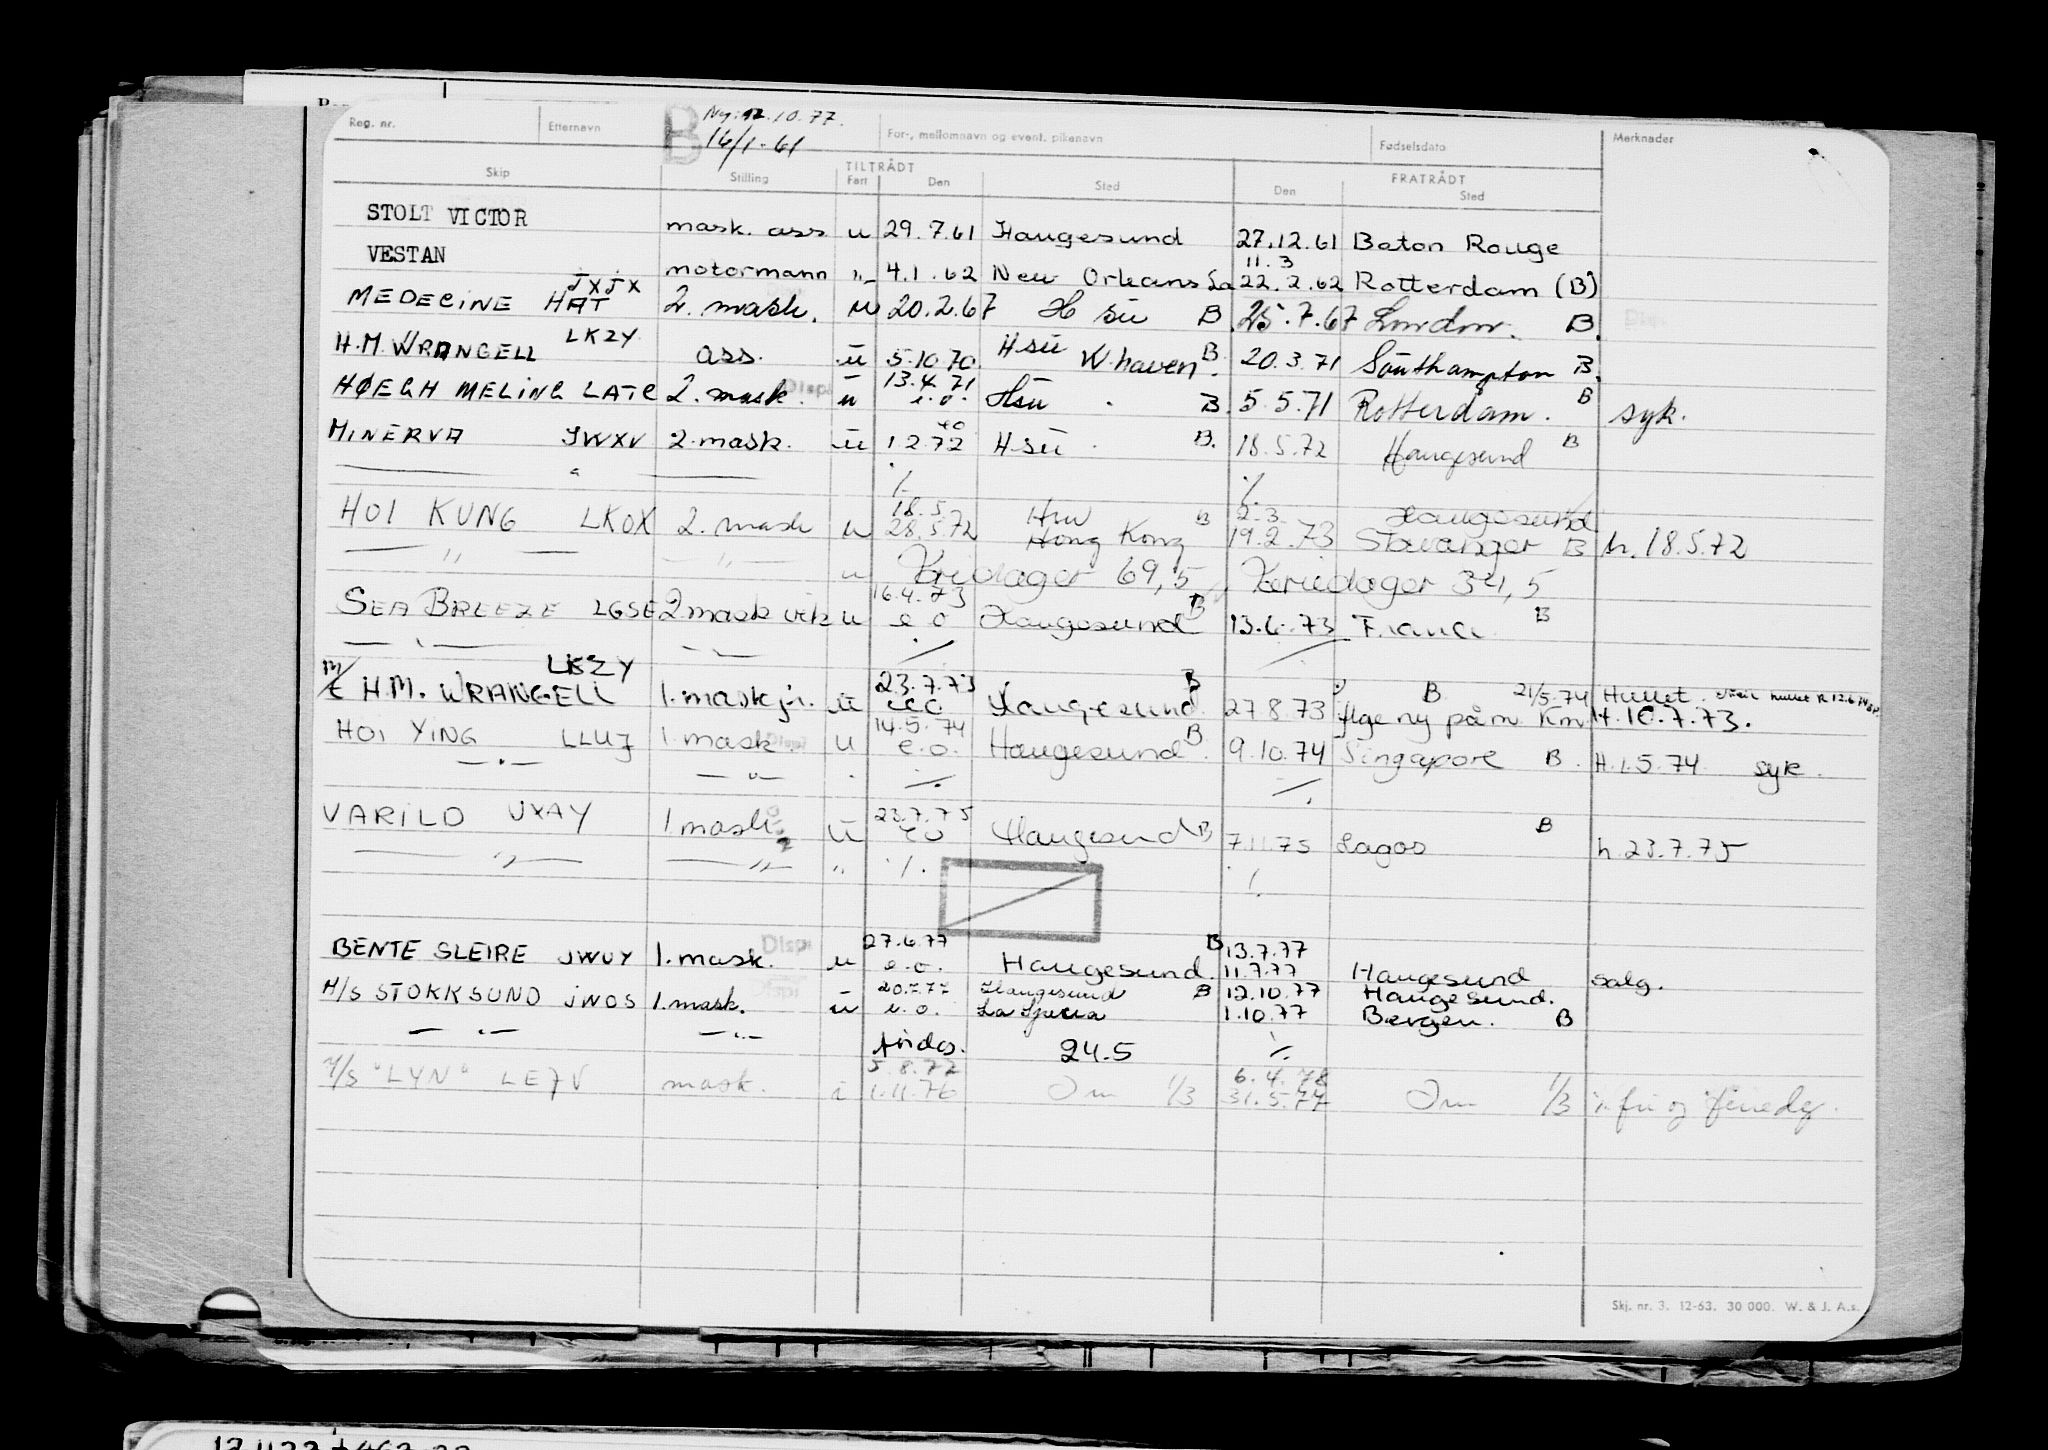 Reg. nr. Etternavn B Ny: 12.10.77. For-, mellomnavn og event. pikenavn Fødselsdato Merknader
16/1-61
Skip Stilling TILTRÅDT Fart Den Sted FRATRÅDT Den Sted
STOLT VICTOR mask. ass u 29.7.61 Haugesund 27.12.61 Baton Rouge
11.3
VESTAN motormann "- 4.1.62 New Orleans La 22.2.62 Rotterdam (B)
MEDECINE HAT JXJX 2. mask. u 20.2.67 H su B 25.7.67 London. B.
H.M. WRANGELL LKZY ass. u 5.10.70 Hsu W.haven B. 20.3.71 Southampton B.
13.4.71
HØEGH MELING LATC 2. mask. u e.o. Hsu B. 5.5.71 Rotterdam. B syk.
MINERVA JWXV 2. mask. u 1.2.72 Hsu B. 18.5.72 Haugesund B
" ./. ./.
18.5 Hsu 2.3 Haugesund
HOI KUNG LKOX 2. mask u 28.5.72 Hong Kong B 19.2.73 Stavanger B h. 18.5.72
" " u Feriedager 69,5 Feriedager 34,5
16.4.73
SEA BREEZE LGSE 2 mask vik u e o Haugesund B 13.6.73 France B
" " ./. ./.
LKZY 23.7.73 B B 21/5.74 Hullet.
M/T H.M. WRANGELL 1. mask jr. u Haugesund 27.8.73 flge ny på m Km H. 10.7.73.
14.5.74
HOI YING LLUJ 1. mask u e.o. Haugesund B. 9.10.74 Singapore B. H. 1.5.74 syk.
" " ./. ./.
23.7.75
VARILD JXAY 1 mask. u eo Haugesund B 7.11.75 Lagos B h. 23.7.75
" " " ./. ./.
27.6.77 B 13.7.77
BENTE SLEIRE JWUY 1. mask. u e.o. Haugesund. 11.7.77 Haugesund salg.
20.7.77 Haugesund B 12.10.77 Haugesund.
M/S STOKKSUND JWOS 1. mask. u e.o. La Spezia 1.10.77 Bergen. B
" " 24.5 ./.
5.8.77 6.4.78
M/S "LYN" LEJV mask. i 1.11.76 1/3 31.5.77 1/3 ./. fri og feriedg.
Skj. nr. 3. 12-63. 30 000. W. & J. A.s.